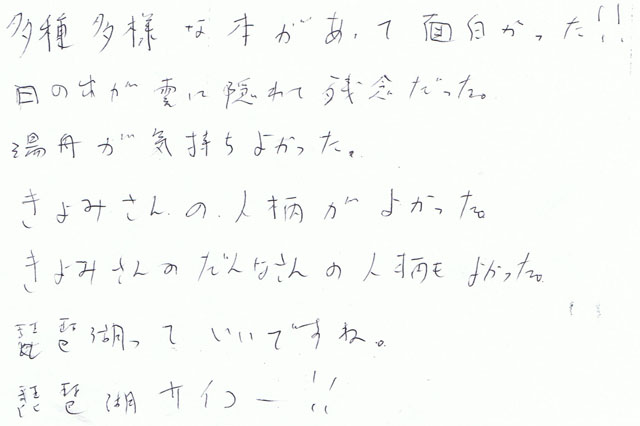 多種多様な本があって面白かった!!
日の出が雲に隠れて残念だった。
湯舟が気持ちよかった。
きよみさんの人柄がよかった。
きよみさんのだんなさんの人柄もよかった。
琵琶湖っていいですね。
琵琶湖サイコー!!